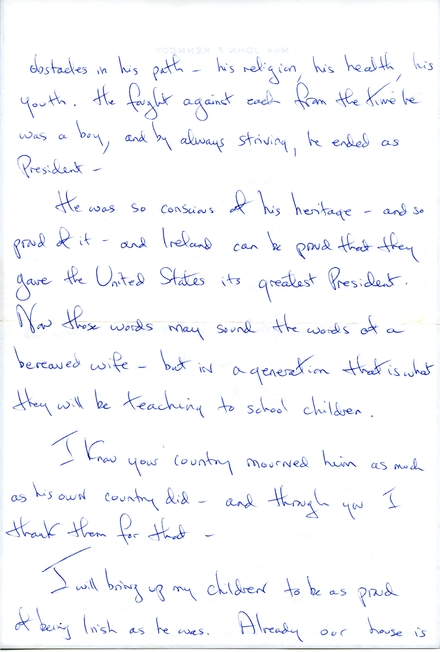 MRS. JOHN F. KENNEDY
obstacles in his path - his religion, his health, his
youth. He fought against each from the time he
was a boy, and by always striving, he ended as
President -
He was so conscious of his heritage - and so
proud of it - and Ireland can be proud that they
gave the United States its greatest President.
Now those words may sound the words of a
bereaved wife - but in a generation that is what
they will be teaching to school children.
I know your country mourned him as much
as his own country did - and through you I
thank them for that -
I will bring up my children to be as proud
of being Irish as he was. Already our house is